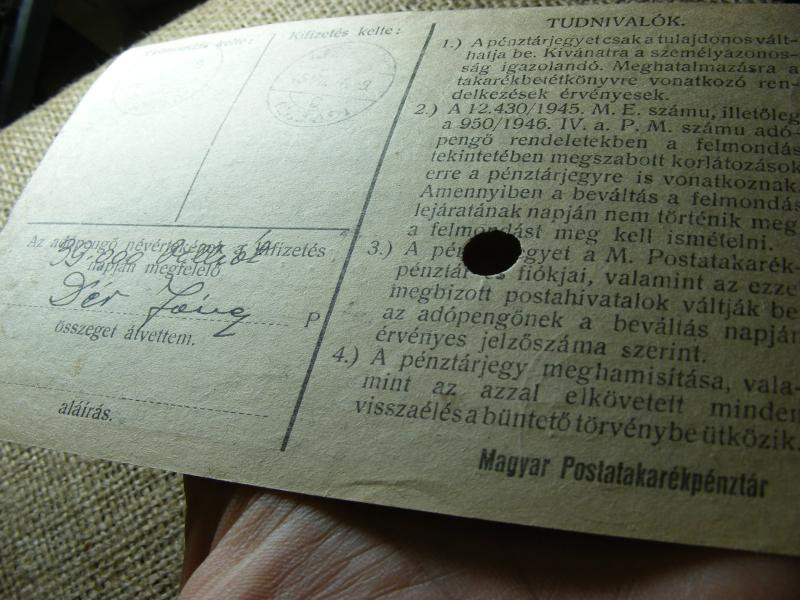 Felmondás kelte:
Kifizetés kelte:
Az adópengő névértékének a kifizetés
napján megfelelő
Dér
P
összeget átvettem.
aláírás.
TUDNIVALÓK.
1.) A pénztárjegyet csak a tulajdonos vált-
halja be. Kívánatra a személyazonos-
ság igazolandó. Meghatalmazásra a
takarékbetétkönyvre vonatkozó ren-
delkezések érvényesek.
2.) A 12.430/1945. M. E. számu, illetőleg
a 950/1946. IV. a. P. M. számu adó-
pengő rendeletekben a felmondás
tekintetében megszabott korlátozások
erre a pénztárjegyre is vonatkoznak.
Amennyiben a beváltás a felmondás
lejáratának napján nem történik meg,
a felmondást meg kell ismételni.
3.) A pénztárjegyet a M. Postatakarék-
pénztár és fiókjai, valamint az ezzel
megbizott postahivatalok váltják be
az adópengőnek a beváltás napján
érvényes jelzőszáma szerint.
4.) A pénztárjegy meghamisítása, vala-
mint az azzal elkövetett minden
visszaélés a büntető törvénybe ütközik.
Magyar Postatakarékpénztár